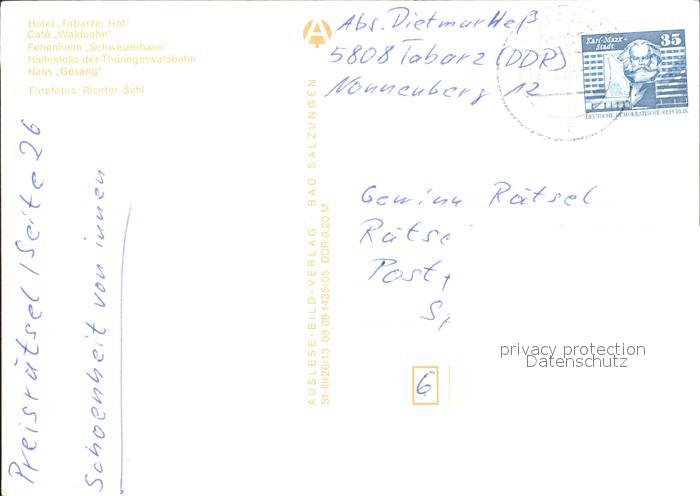 Hotel „Tabarzer Hof“
Café „Waldbahn“
Ferienheim „Schweizerhaus“
Haltestelle der Thüringerwaldbahn
Haus „Gesang“
Farbfotos: Richter, Suhl
Preisrätsel / Seite 26
Schoenheit von innen
AUSLESE-BILD-VERLAG · BAD SALZUNGEN
St-III/26/13 09 09 1435/05 DDR 0,20 M
Abs. Dietmar Heß
5808 Tabarz (DDR)
Nonnenberg 12
Karl-Marx-
Stadt
35
DEUTSCHE DEMOKRATISCHE REPUBLIK
Gewinn Rätsel
Rätse
Post
Sp
6
privacy protection
Datenschutz